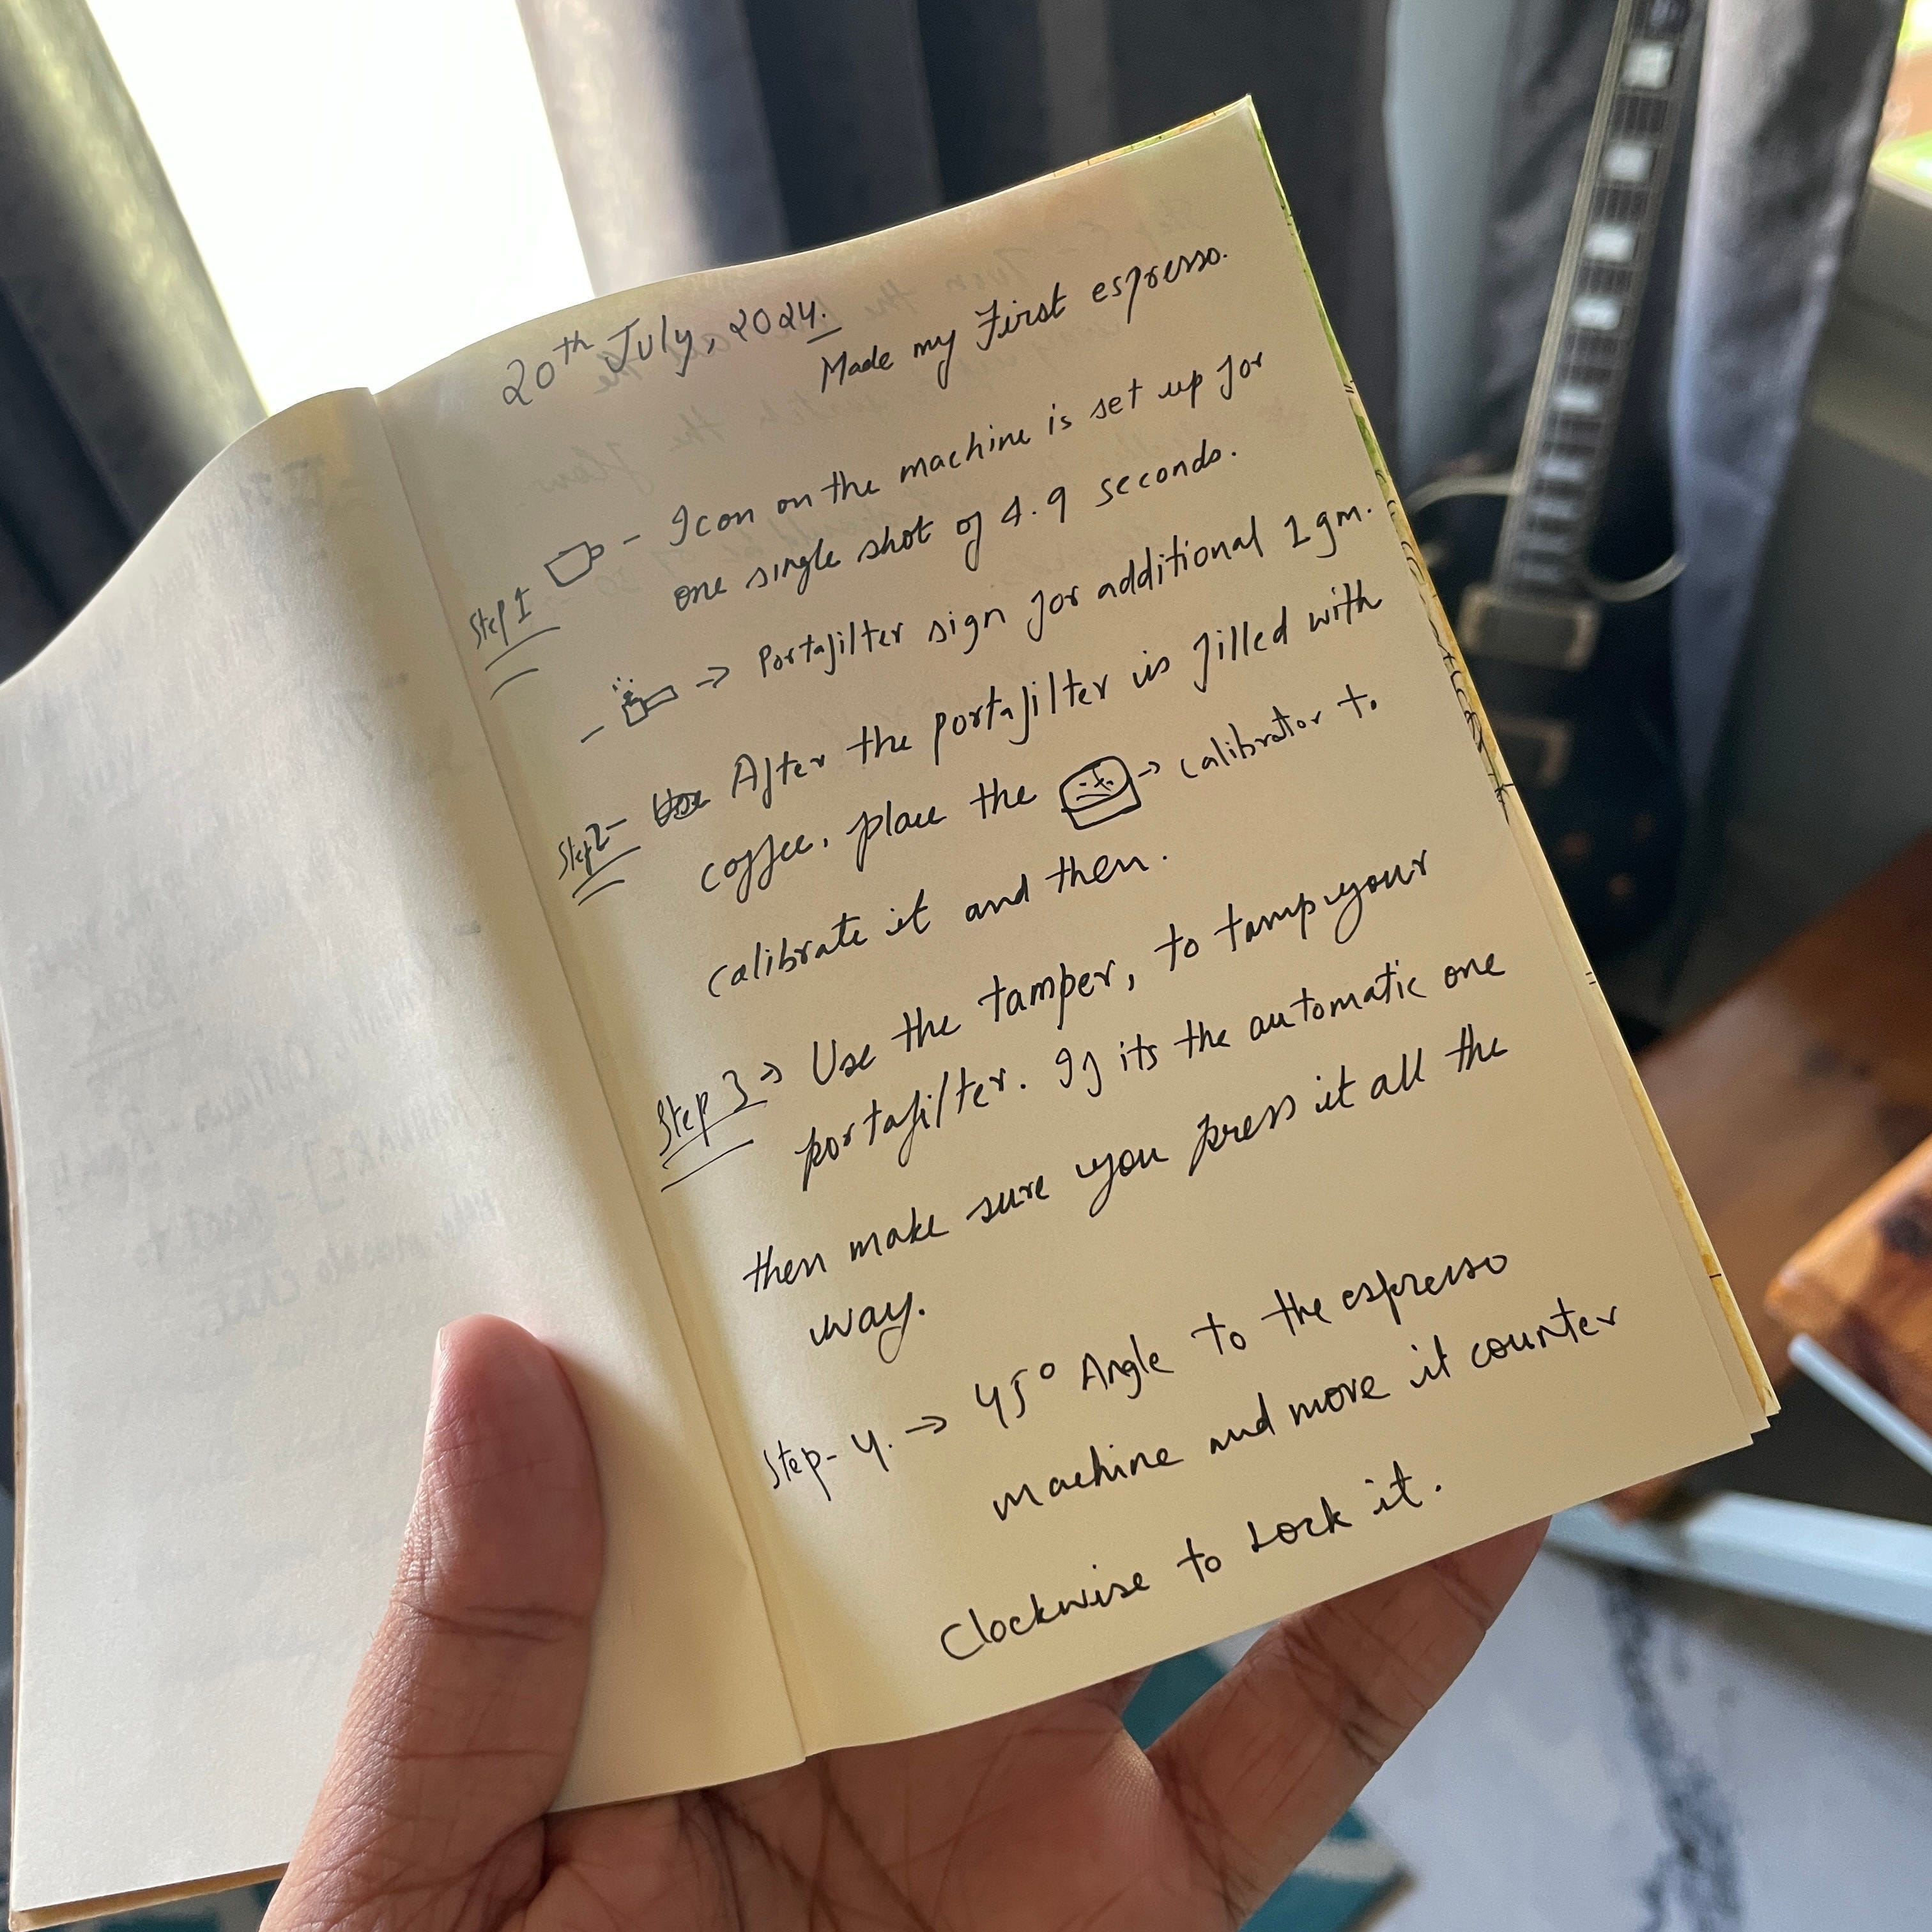 20th July, 2024.
Made my First espresso.
Step 1 - Icon on the machine is set up for
one single shot of 4.9 seconds.
- → Portafilter sign for additional 1gm.
Step 2 - After the portafilter is filled with
coffee, place the → calibrator to
calibrate it and then.
Step 3 → Use the tamper, to tamp your
portafilter. If its the automatic one
then make sure you press it all the
way.
Step - 4. → 45° Angle to the espresso
machine and move it counter
Clockwise to Lock it.